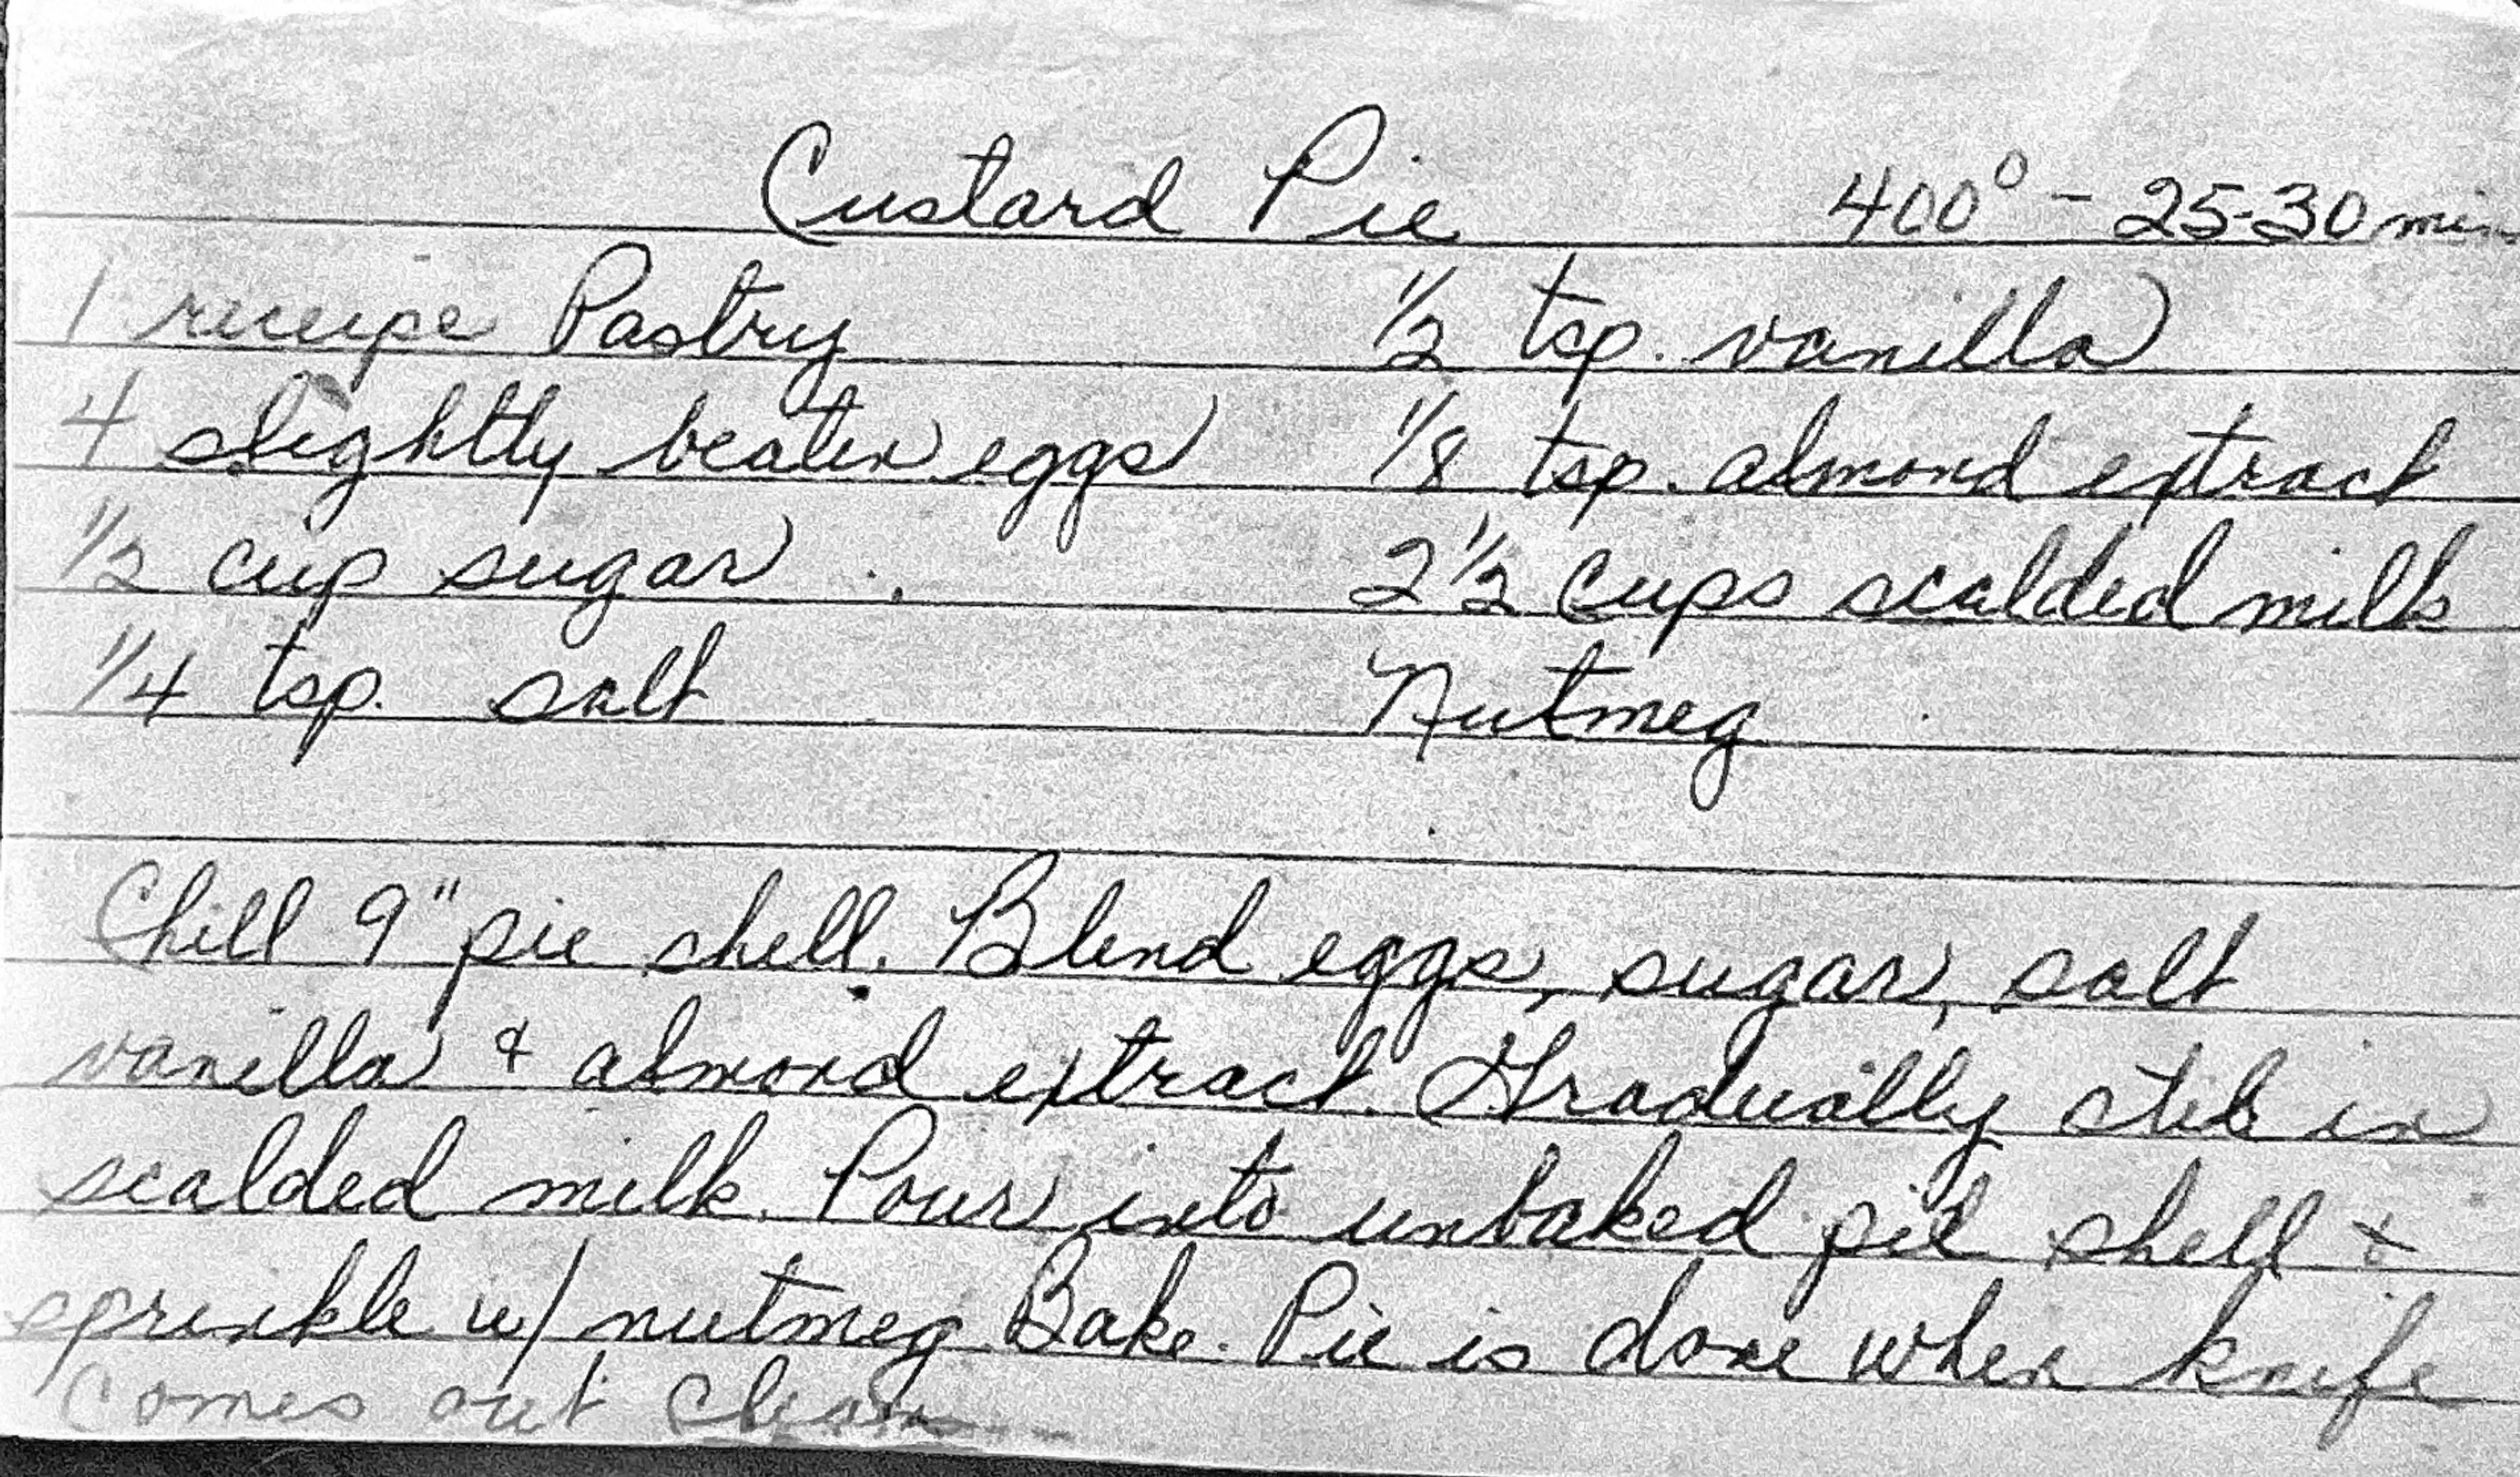 Custard Pie 400° - 25-30 min
1 receipe Pastry 1/2 tsp. vanilla
4 slightly beaten eggs 1/8 tsp. almond extract
1/2 cup sugar 2 1/2 cups scalded milk
1/4 tsp. salt Nutmeg
Chill 9" pie shell. Blend eggs, sugar, salt
vanilla & almond extract. Gradually stir in
scalded milk. Pour into unbaked pie shell &
sprinkle w/ nutmeg. Bake. Pie is done when knife
comes out clean